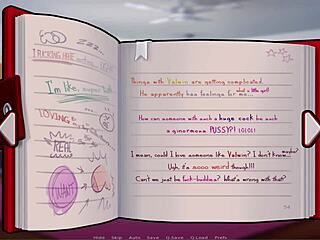 zzz...
I'm like, super
LOVING
REAL
WANT
Things with Valein are getting complicated.
He apparently has feelings for me...
what a little girl!
How can someone with such a huge cock be such
a ginormous PUSSY?! LOLOL!
maybe?
I mean, could I love someone like Valein? I don't know...
Ugh, it's sooo weird though!!!
Can't we just be fuck-buddies? What's wrong with that?
54
Hide Skip Auto Save Q.Save Q.Load Prefs